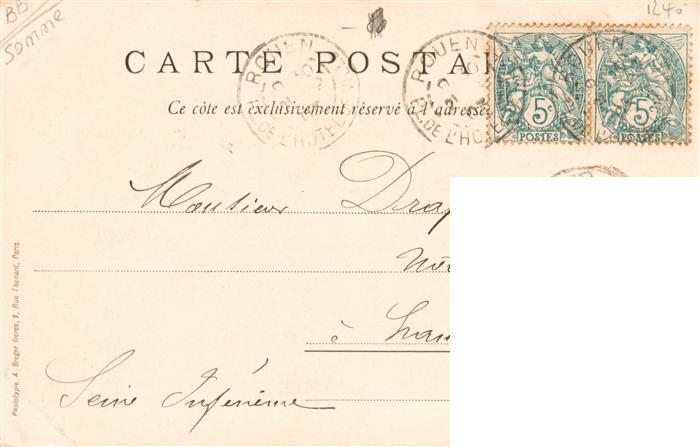 BB
Somme
1240
CARTE POSTA
Ce côte est exclusivement réservé à l'adresse
ROUEN
R. DE L'HOTEL
ROUEN
R. DE L'HO
5c
POSTES
5c
POSTES
Monsieur Drap
à
Seine Inférieure
Phototypie A. Breger frères, 9, Rue Thenard, Paris